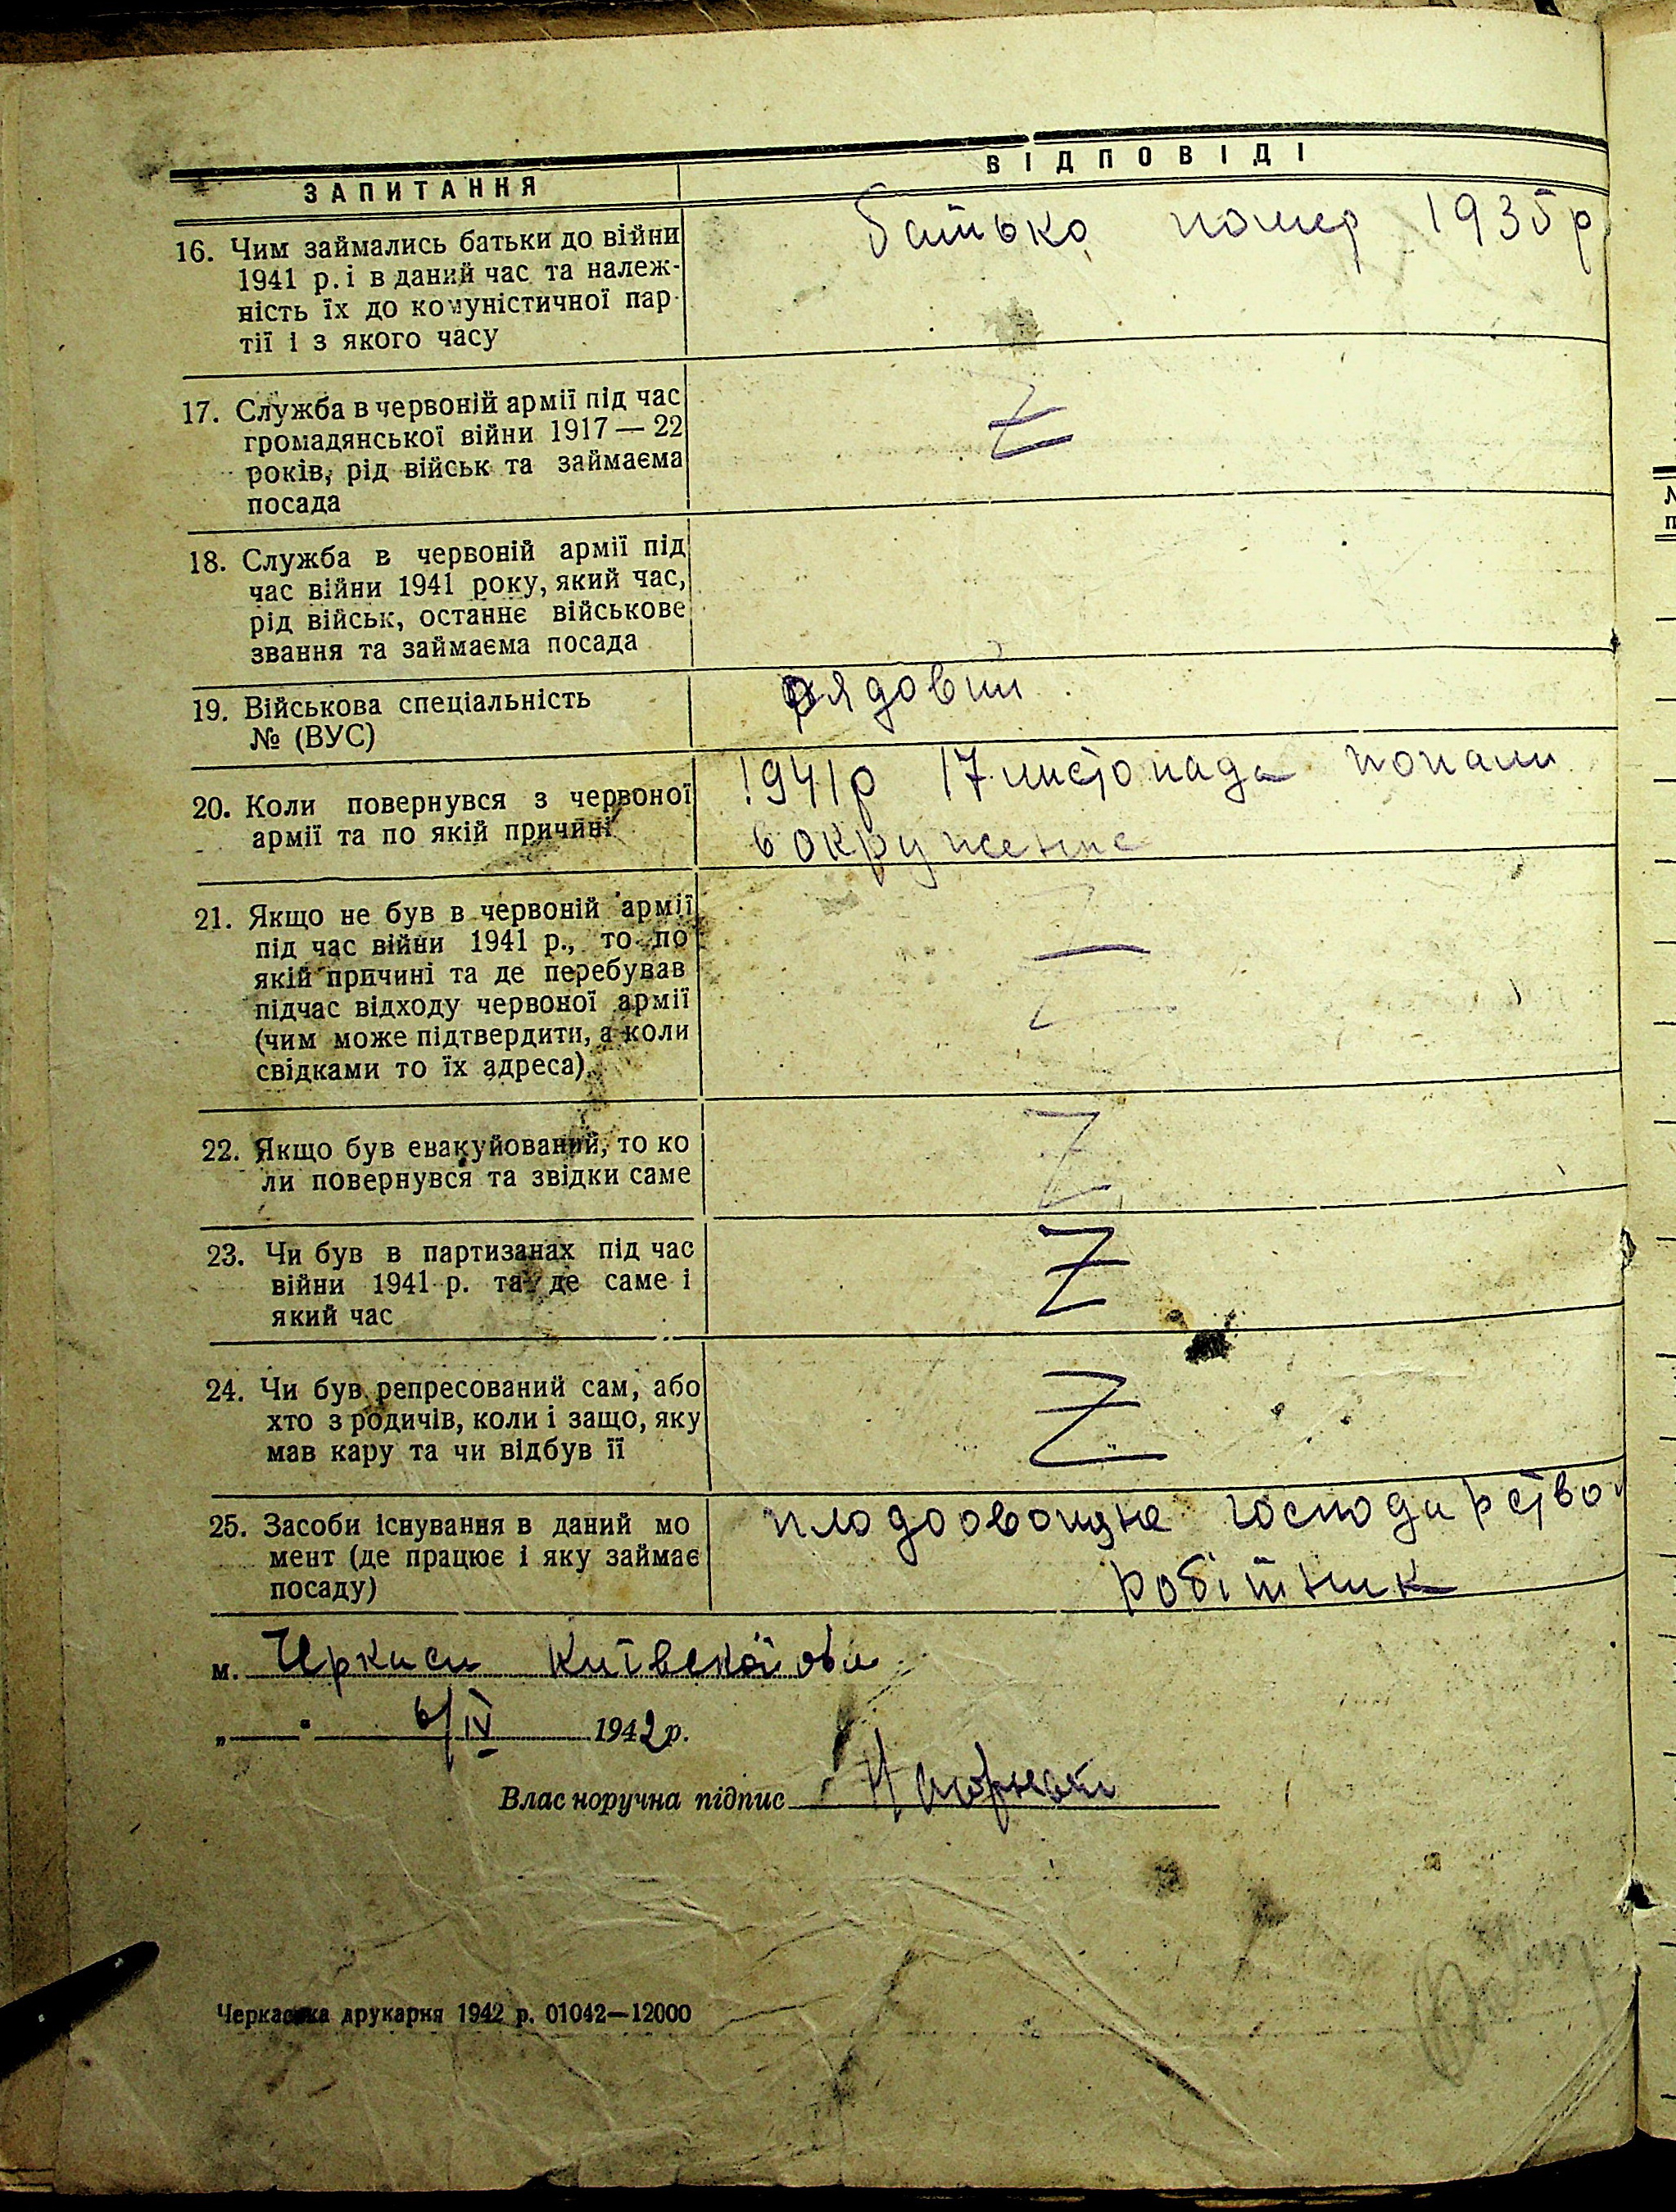 ЗАПИТАННЯ
ВІДПОВІДІ
16. Чим займались батьки до війни
1941 р. і в даний час та належ-
ність їх до комуністичної пар-
тії і з якого часу
батько помер 1935 р
17. Служба в червоній армії під час
громадянської війни 1917 — 22
років, рід військ та займаєма
посада
Z
18. Служба в червоній армії під
час війни 1941 року, який час,
рід військ, останнє військове
звання та займаєма посада
19. Військова спеціальність
№ (ВУС)
рядовий
20. Коли повернувся з червоної
армії та по якій причині
1941р 17 листопада попали
в окружение
21. Якщо не був в червоній армії
під час війни 1941 р., то по
якій причині та де перебував
підчас відходу червоної армії
(чим може підтвердити, а коли
свідками то їх адреса).
Z
22. Якщо був евакуйований, то ко
ли повернувся та звідки саме
Z
23. Чи був в партизанах під час
війни 1941 р. та де саме і
який час
Z
24. Чи був репресований сам, або
хто з родичів, коли і защо, яку
мав кару та чи відбув її
Z
25. Засоби існування в даний мо
мент (де працює і яку займає
посаду)
плодоовощне господарство
робітник
м. Черкаси Київської обл
„ " 6/IV 1942 р.
Власноручна підпис
Черкаська друкарня 1942 р. 01042—12000